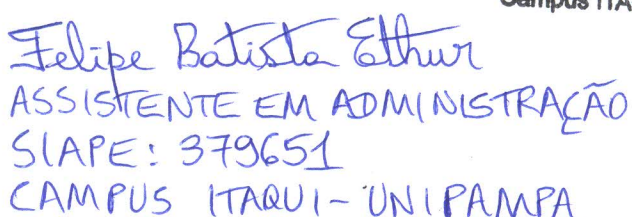 Campus ITA
Felipe Batista Ethur
ASSISTENTE EM ADMINISTRAÇÃO
SIAPE: 379651
CAMPUS ITAQUI - UNIPAMPA